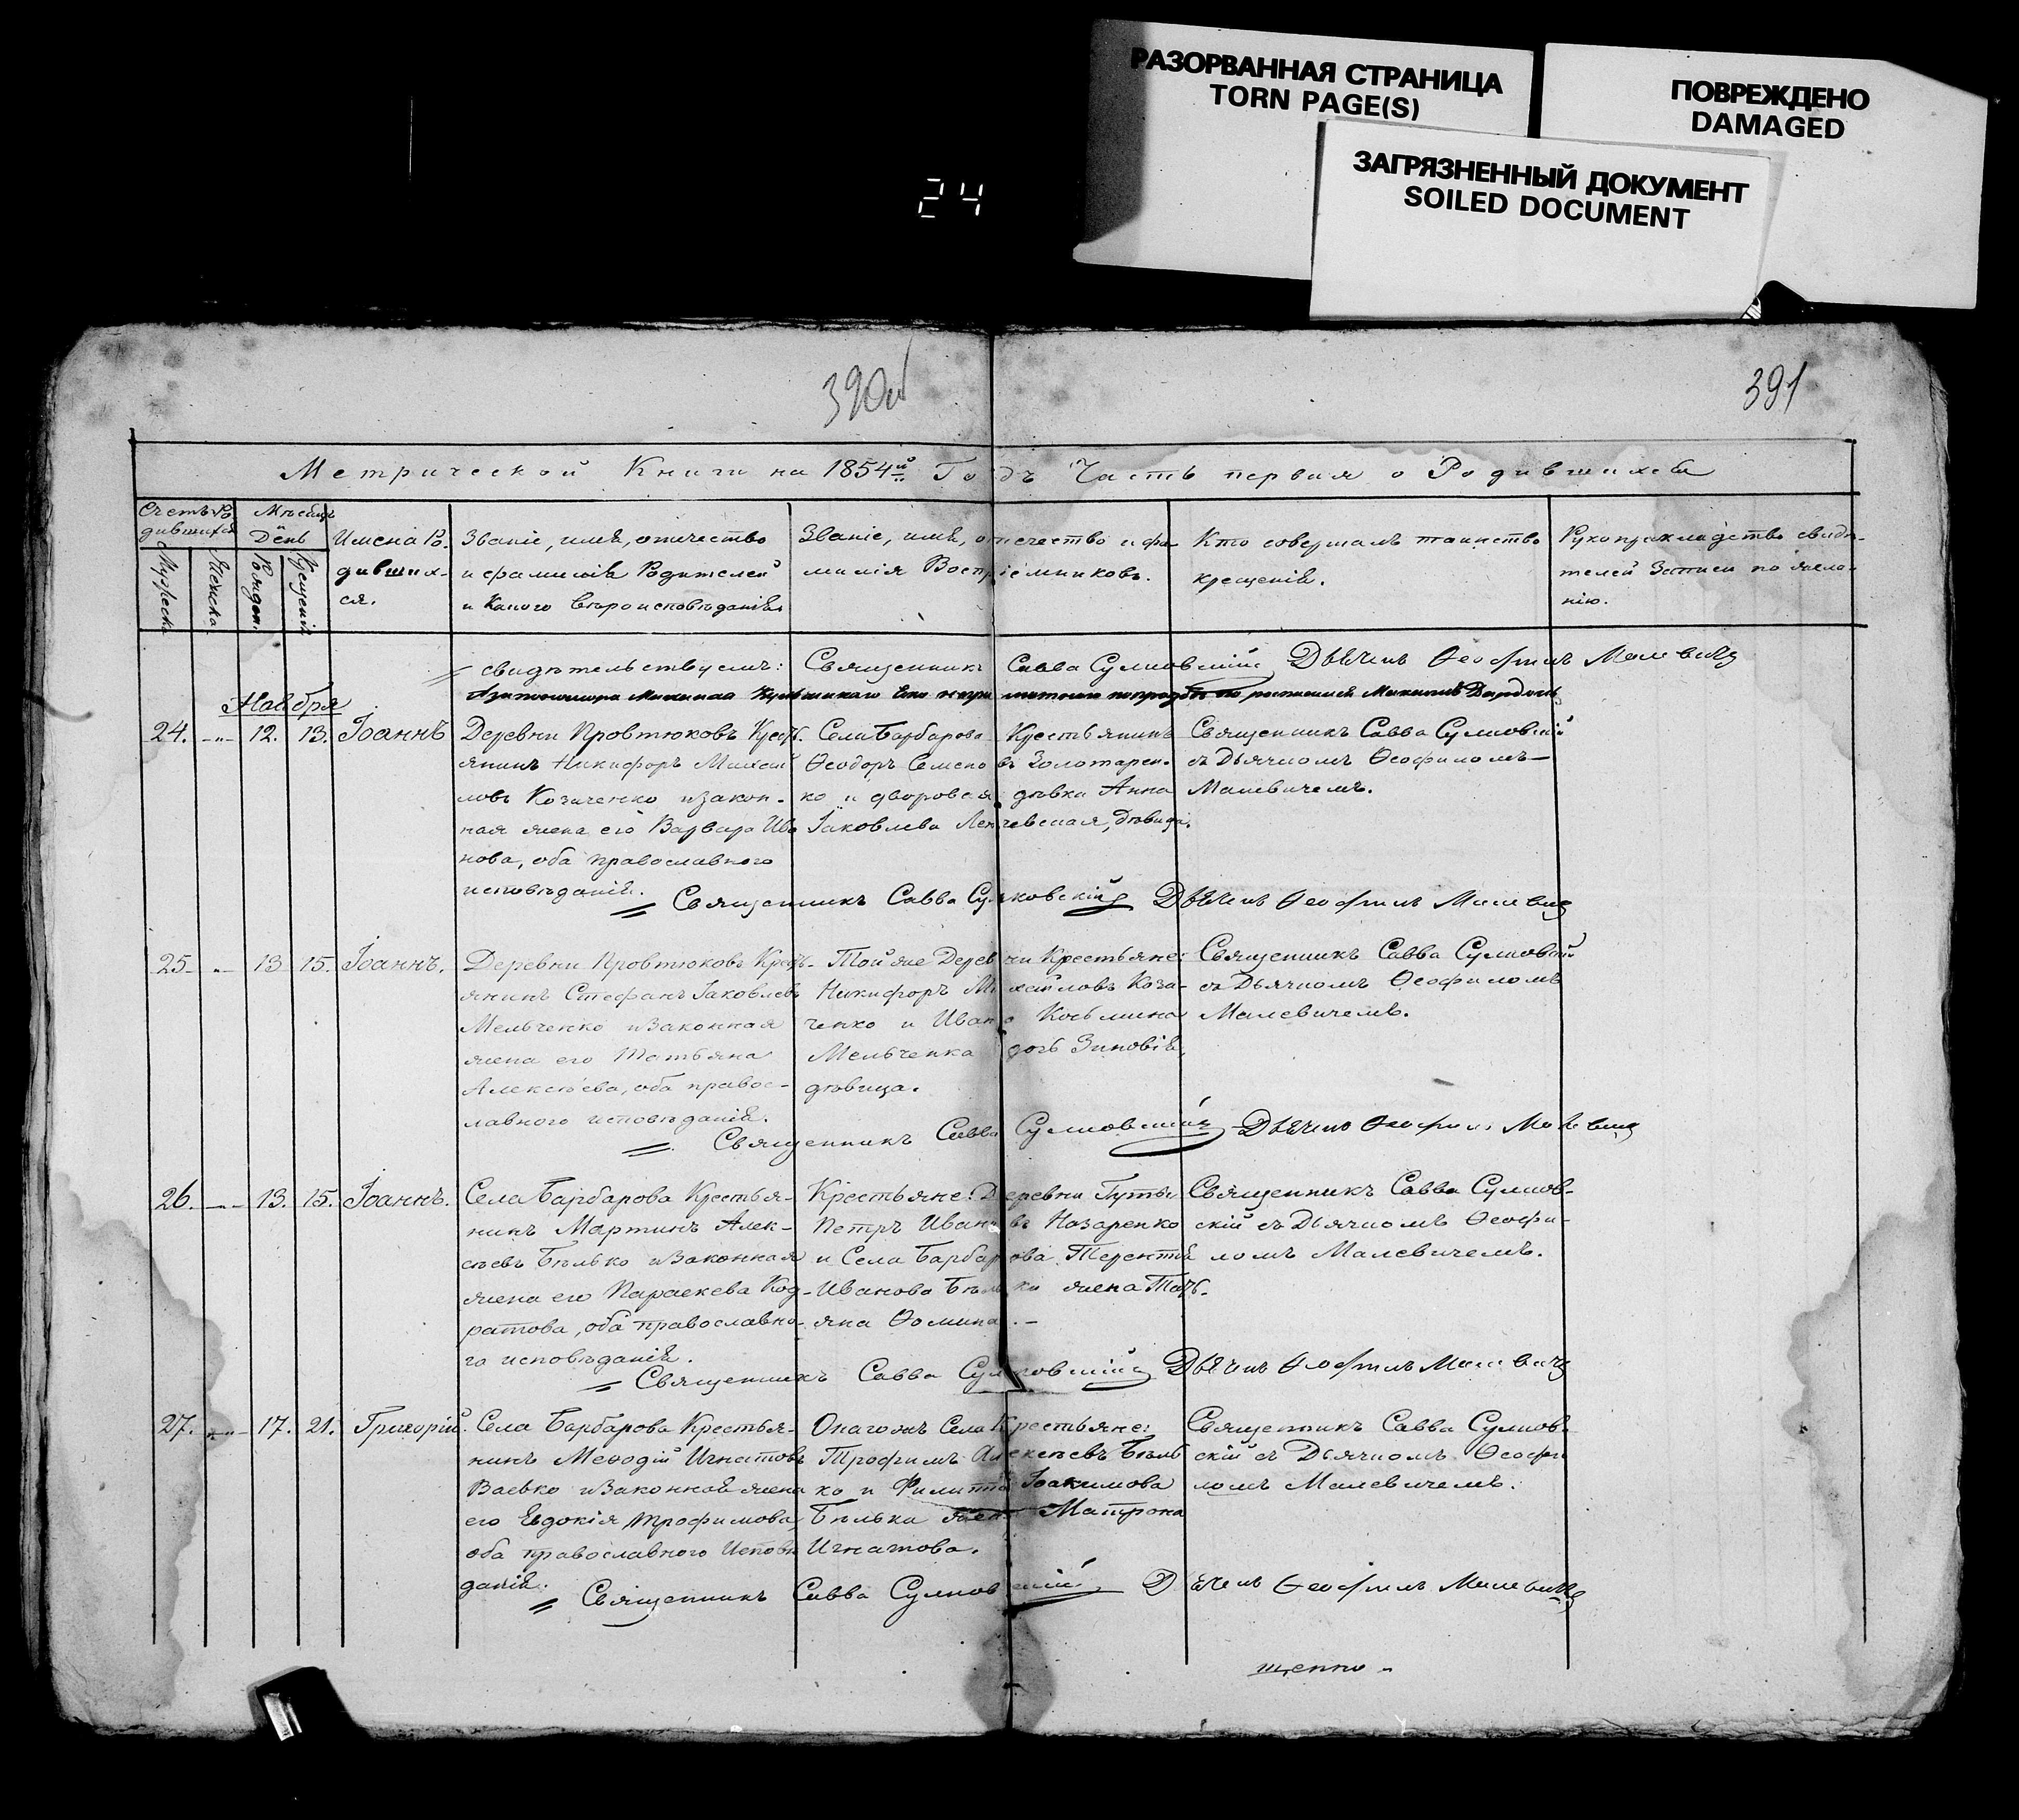 РАЗОРВАННАЯ СТРАНИЦА
TORN PAGE(S)
ПОВРЕЖДЕНО
DAMAGED
ЗАГРЯЗНЕННЫЙ ДОКУМЕНТ
SOILED DOCUMENT
24
390об
391
Метрической Книги на 1854й Годъ Часть первая о Родившихся
Счетъ Ро-
дившихся
Мужеска
Женска
Мѣсяцъ
и
День
Рожден.
Крещенія
Имена Ро-
дивших-
ся.
Званіе, имя, отчество
и фамилія Родителей
и Какого Вѣроисповѣданія.
Званіе, имя, отчество и фа-
милія Воспріемниковъ.
Кто совершалъ таинство
крещенія.
Рукоприкладство свидѣ-
телей Записи по жела-
нію.
свидѣтельствуемъ: Священникъ Савва Сулковскій Дьячекъ Ѳеофилъ Малевичъ
Ноября
24. -"- 12. 13. Іоаннъ
Деревни Провтюковъ Кресть-
янинъ Никифоръ Михай-
ловъ Козаченко и закон-
ная жена его Варвара Ива-
нова, оба православного
исповѣданія.
Села Барбарова Крестьянинъ
Ѳеодоръ Семеновъ Золотарен-
ко и дворовая дѣвка Анна
Іаковлева, дѣвица.
Священникъ Савва Сулковскій
съ Дьячкомъ Ѳеофиломъ
Малевичемъ.
Священникъ Савва Сулковскій Дьячекъ Ѳеофилъ Малевичъ
25. -"- 13 15. Іоаннъ.
Деревни Провтюковъ Кресть-
янинъ Стефанъ Іаковлевъ
Мельченко и Законная
жена его Татьяна
Алексѣева, оба правос-
лавного исповѣданія.
Той же Деревни Крестьяне:
Никифоръ Михайловъ Коза-
ченко и Ивана Косьмина
Мельченка дочь Зиновія,
дѣвица.
Священникъ Савва Сулковскій
съ Дьячкомъ Ѳеофиломъ
Малевичемъ.
Священникъ Савва Сулковскій Дьячекъ Ѳеофилъ Малевичъ
26. -"- 13. 15. Іоаннъ.
Села Барбарова Крестья-
нинъ Мартинъ Алек-
сѣевъ Бѣлько и Законная
жена его Параскева Код-
ратова, оба православно-
го исповѣданія.
Крестьяне: Деревни Гуты
Петръ Ивановъ Назаренко
и Села Барбарова Терентія
Иванова Бѣлька жена Тать-
яна Ѳомина.
Священникъ Савва Сулков-
скій съ Дьячкомъ Ѳеофи-
ломъ Малевичемъ.
Священникъ Савва Сулковскій Дьячекъ Ѳеофилъ Малевичъ
27. -"- 17. 21. Григорій.
Села Барбарова Крестья-
нинъ Меѳодій Игнатовъ
Ваевко и Законная жена
его Евдокія Трофимова,
оба православного Исповѣ-
данія.
Онагожъ Села Крестьяне:
Трофимъ Алексѣевъ Бѣль-
ко и Филиппа Іоакимова
Бѣлька жена Матрона
Игнатова.
Священникъ Савва Сулков-
скій съ Дьячкомъ Ѳеофи-
ломъ Малевичемъ.
Священникъ Савва Сулковскій Дьячекъ Ѳеофилъ Малевичъ